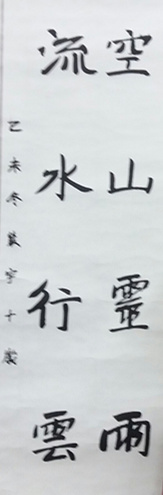 空山靈雨
流水行雲
乙未冬
十歲